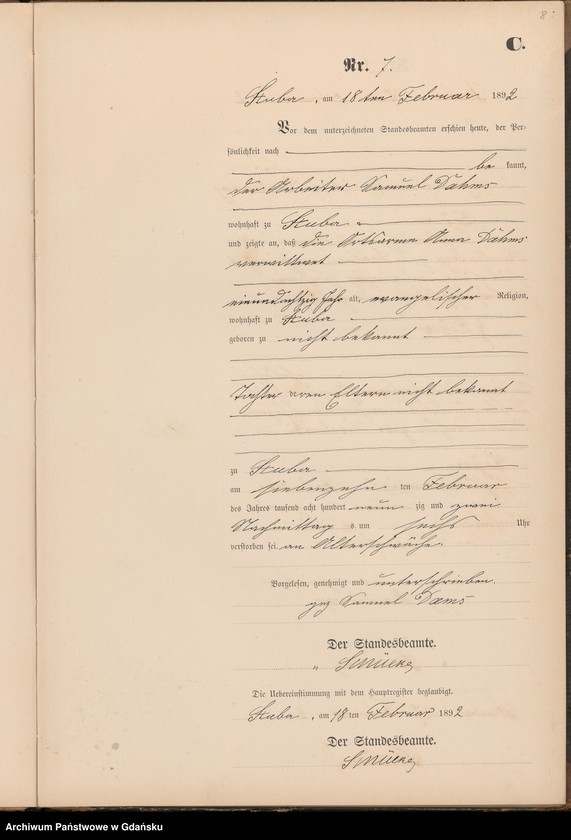 8
C.
Nr. 7.
Stuba, am 18 ten Februar 1892
Vor dem unterzeichneten Standesbeamten erschien heute, der Per-
sönlichkeit nach
be kannt,
der Arbeiter Samuel Dahms
wohnhaft zu Stuba
und zeigte an, daß die Ortsarme Anna Dähms
verwittwet
einundachtzig Jahr alt, evangelischer Religion,
wohnhaft zu Stuba
geboren zu nicht bekannt
Tochter Eltern nicht bekannt
zu Stuba
am siebenzehn ten Februar
des Jahres tausend acht hundert neun zig und zwei
Nachmittag s um sechs Uhr
verstorben sei. an Alterschwäche.
Vorgelesen, genehmigt und unterschrieben.
gez Samuel Dams
Der Standesbeamte.
Die Uebereinstimmung mit dem Hauptregister beglaubigt.
Stuba, am 18 ten Februar 1892
Der Standesbeamte.
Archiwum Państwowe w Gdańsku